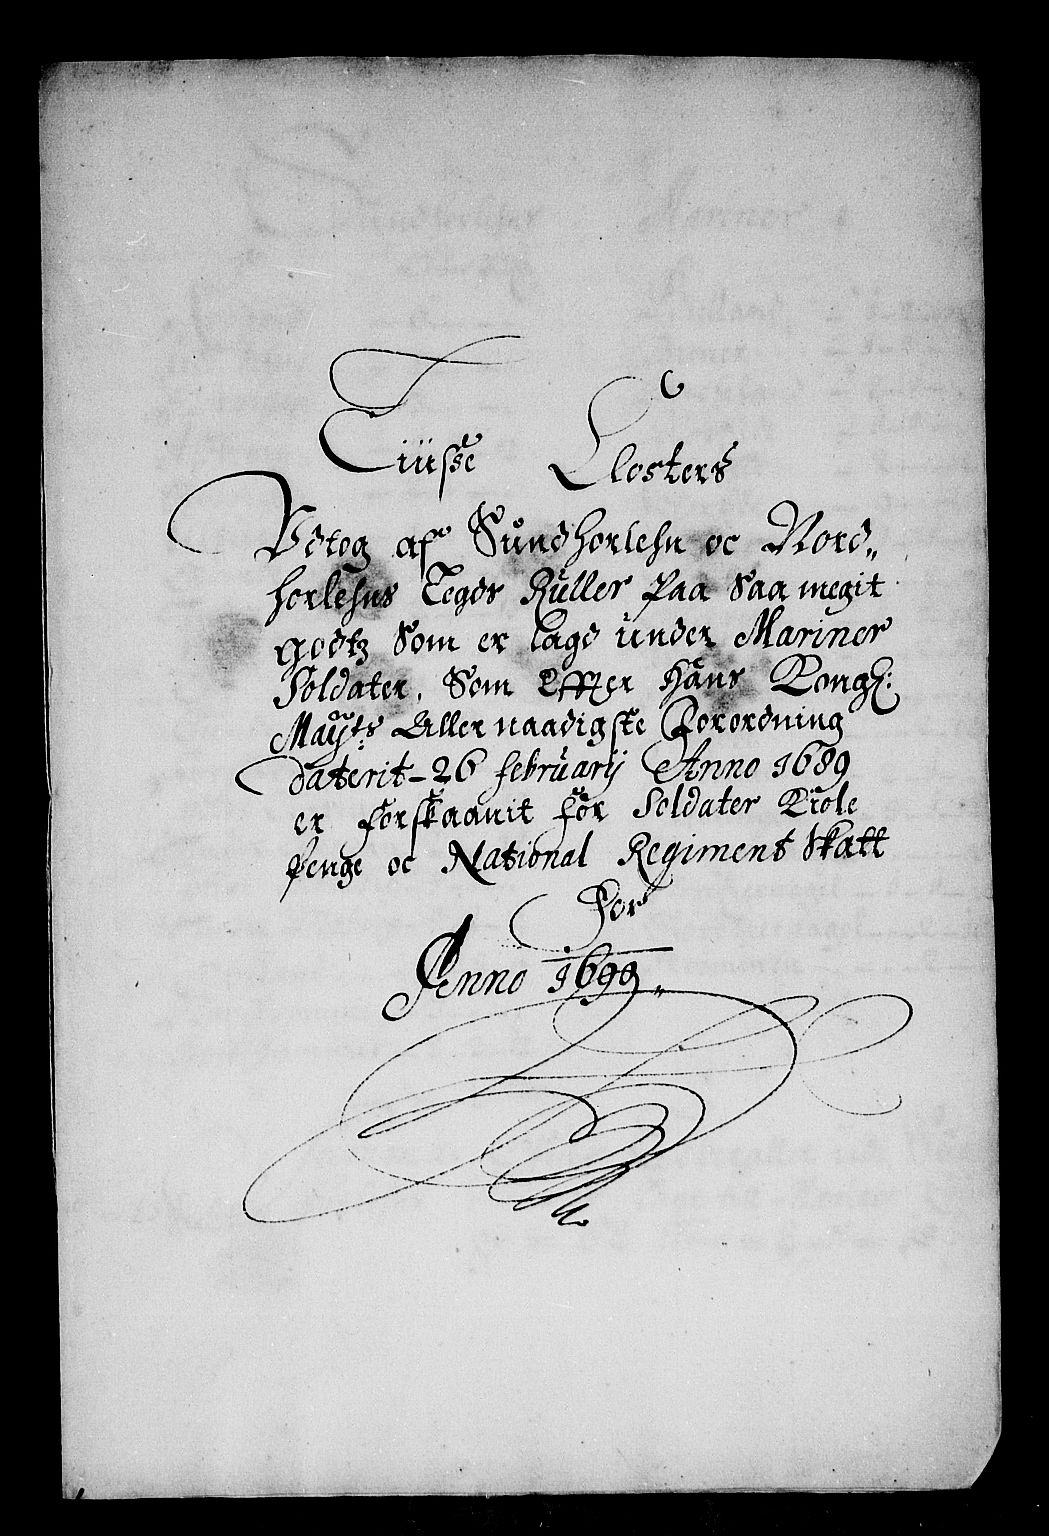 Liusse Closters
Udtog af Sundhorlehn oc Nord„
horlehns Legds Ruller Paa Saa megit
godtz Som er lagd under Mariner
Soldater. Som Effter Hans Kongl:
Mayts: Aller naadigste Forordning
daterit – 26 february Anno 1689
er forskaanit for Soldater Kiole
Penge oc National Regiment Skatt
For
Anno 1699„